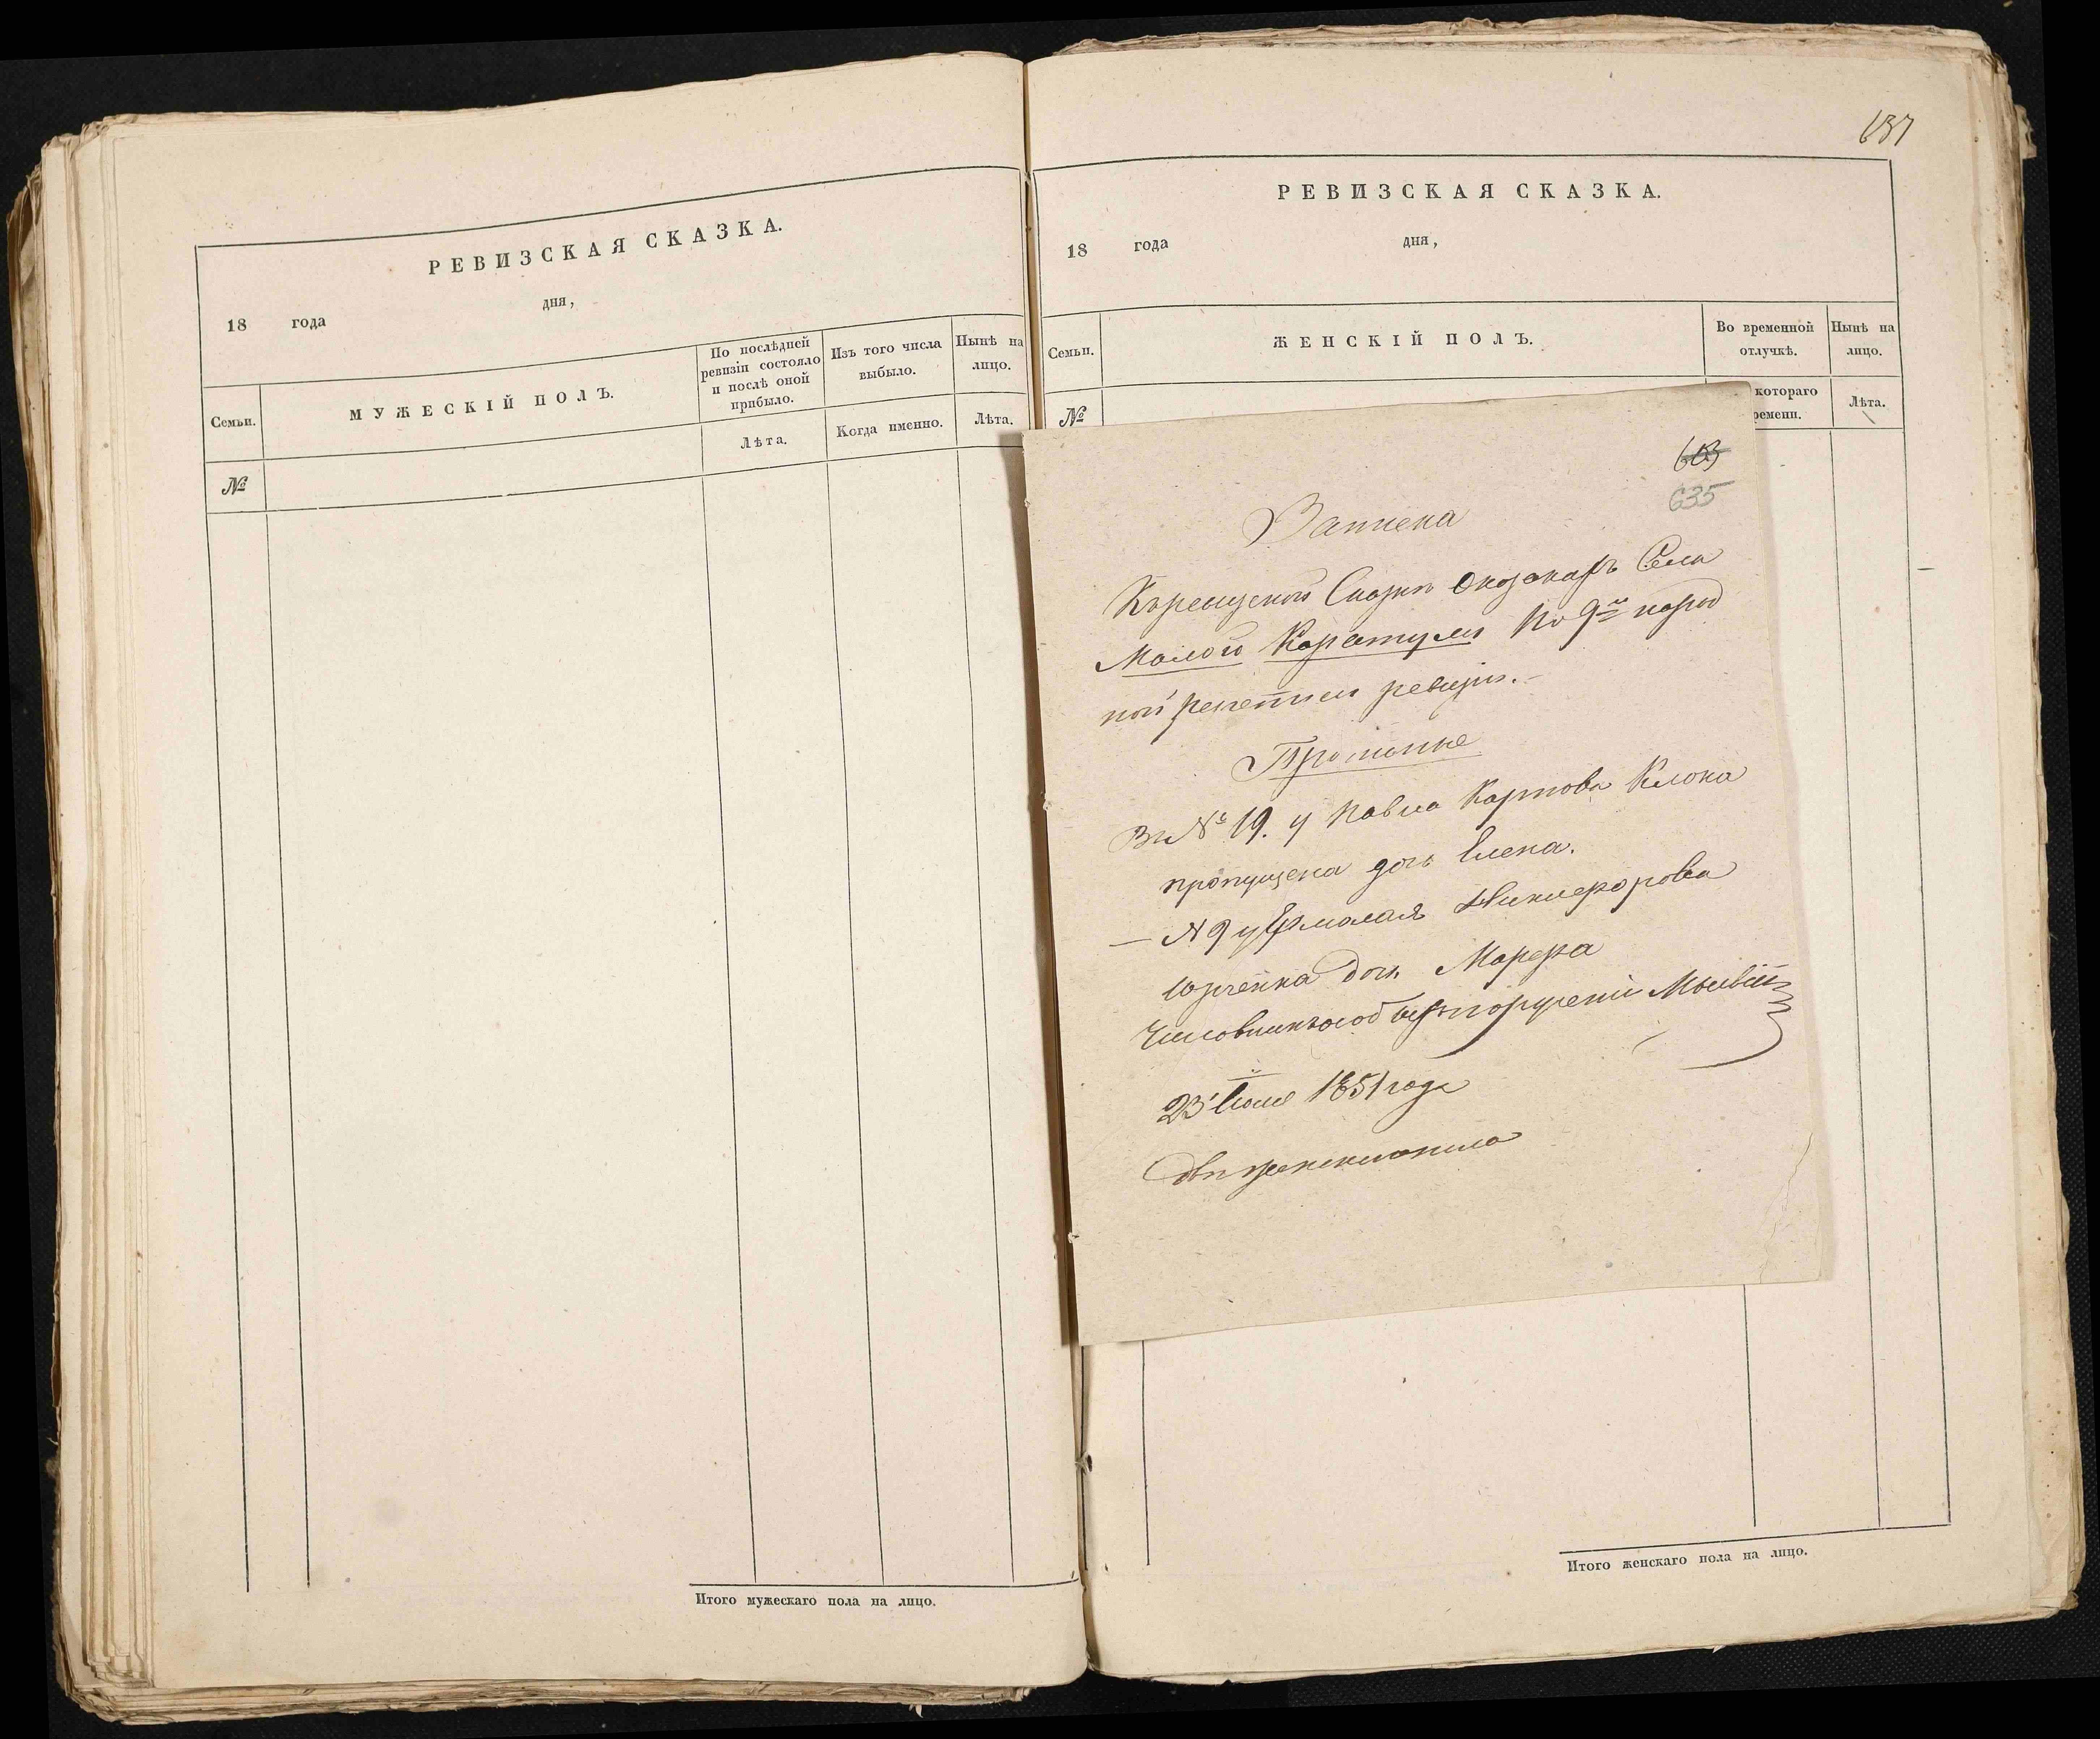 РЕВИЗСКАЯ СКАЗКА.
18 года дня,
Семьи.
МУЖЕСКІЙ ПОЛЪ.
По послѣдней ревизіи состояло и послѣ оной прибыло.
Изъ того числа выбыло.
Нынѣ на лицо.
Лѣта.
Когда именно.
Лѣта.
№
Итого мужескаго пола на лицо.
637
РЕВИЗСКАЯ СКАЗКА.
18 года дня,
Семьи.
ЖЕНСКІЙ ПОЛЪ.
Во временной отлучкѣ.
Нынѣ на лицо.
№
котораго
ремени.
Лѣта.
603
635
Записка
Къ ревизской Сказкѣ Села
Малой Каратули по 9й народ
ной ревизіи.
Въ № 19. у Павла Карпова Клока
пропущена дочь Елена.
— N 9 у Ермолая Никифорова
Юрченка дочь Марфа
Чиновникъ особ порученій
23 Іюля 1851 года
двѣ женска пола
Итого женскаго пола на лицо.